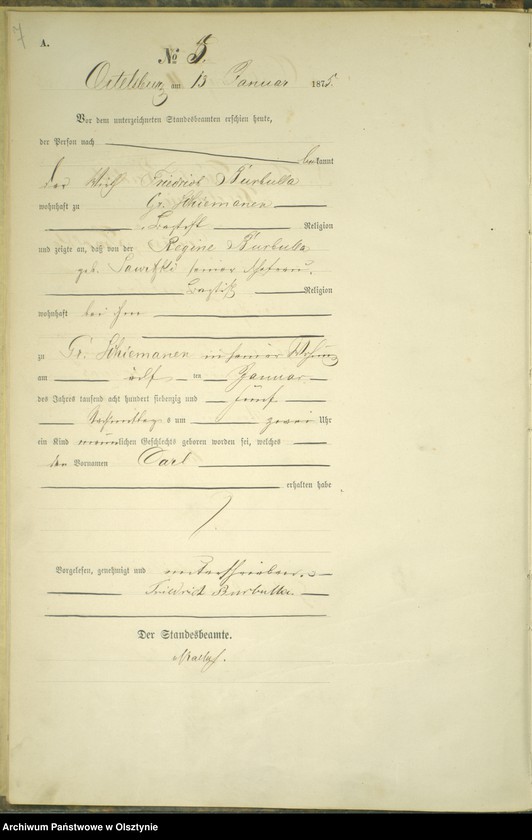 7
A.
№ 5.
Ortelsburg am 13 Januar 1875.
Vor dem unterzeichneten Standesbeamten erschien heute,
der Person nach bekannt
der Wirth Friedrich Burbulla
wohnhaft zu Gr. Schiemanen
Baptist Religion
und zeigte an, daß von der Regine Burbulla
geb. Sawitzki seiner Ehefrau,
Baptist Religion
wohnhaft bei ihm
zu Gr. Schiemanen in seiner Wohnung
am elf ten Januar
des Jahres tausend acht hundert siebenzig und fünf
Nachmittags um zwei Uhr
ein Kind männlichen Geschlechts geboren worden sei, welches
den Vornamen Carl
erhalten habe
Vorgelesen, genehmigt und unterschrieben.
Friedrich Burbulla
Der Standesbeamte.
Archiwum Państwowe w Olsztynie